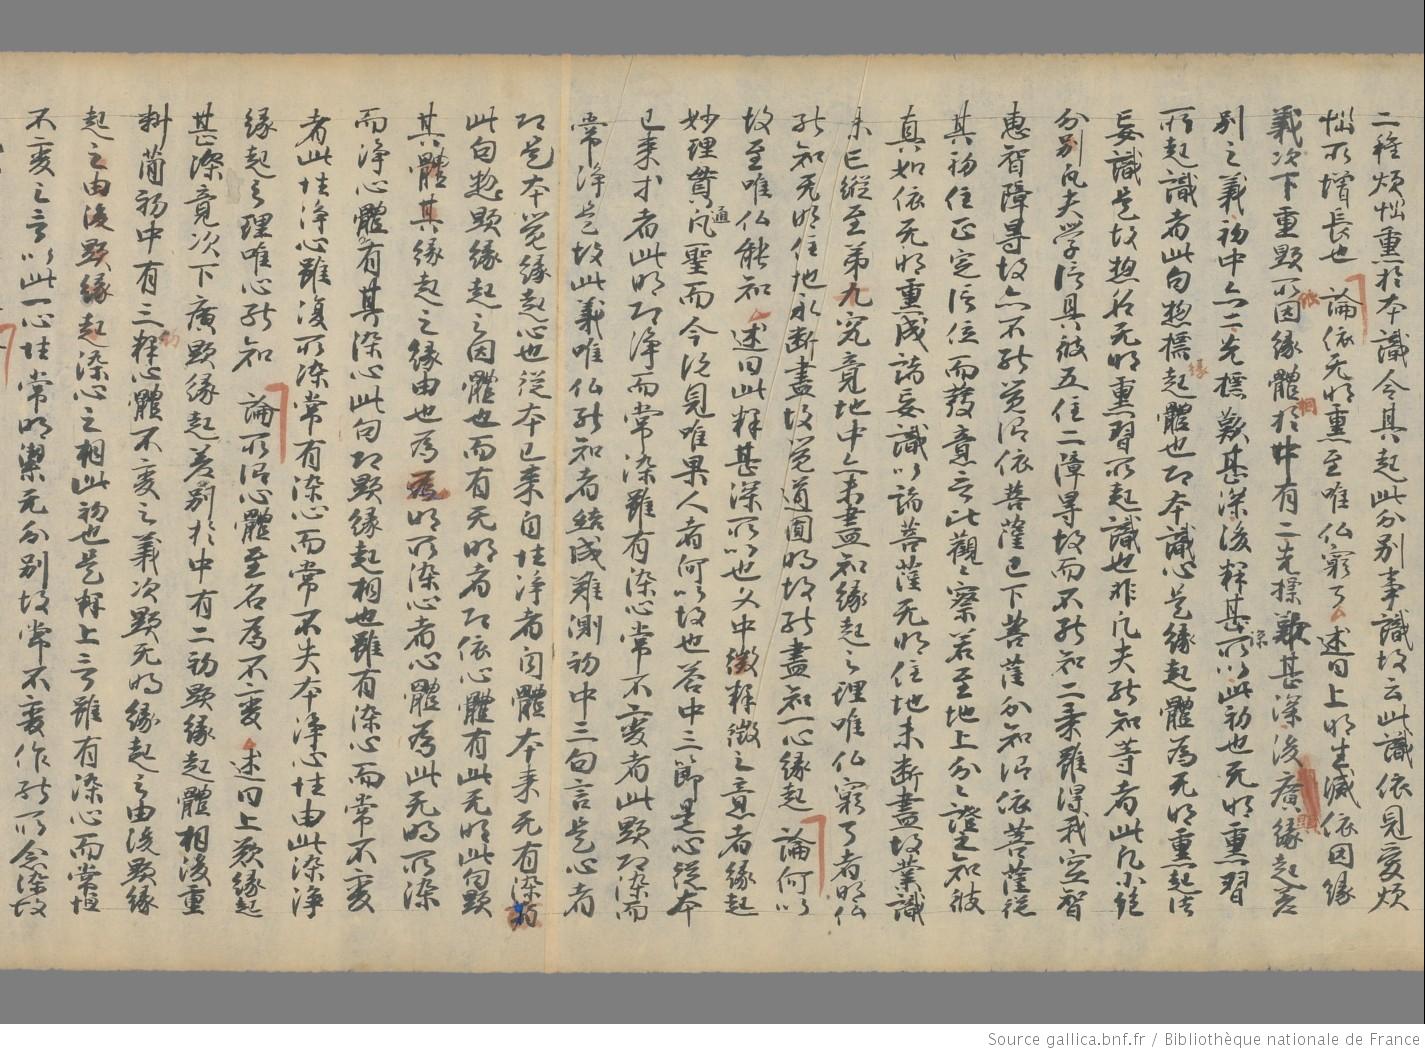 二種煩惱熏於本識令其起此分別事識故云此識依見愛煩
惱所增長也 論依无明熏至唯仏窮了 述曰上明生滅依因緣
義次下重顯所因緣體相於中有二先標歎甚深後廣顯緣起差
別之義初中亦二先標歎甚深後釋甚深所以此初也无明熏習
所起識者此句惣標緣起體也即本識心是緣起體為无明熏起決
妄識是故惣名无明熏習所起識也非凡夫能知等者此凡小詑
分別凡夫學信具彼五住二障㝵故而不能知二乘雖得我空智
惠智障㝵故亦不能覚謂依菩薩已下菩薩分知謂依菩薩從
其初住正定信位而發意言比觀〻察若至地上分〻證之知彼
真如依无明熏成諸妄識以諭菩薩无明住地未断盡故業識
未已縱至第九究竟地中亦未盡知緣起之理唯仏窮了者明仏
能知无明住地永断盡故覚道圓明故能盡知一心緣起 論何以
故至唯仏能知 述曰此釋甚深所以也文中徵釋徵之意者緣起
妙理貫通凡聖而今説見唯果人者何以故也荅中三節是心從本
已来才者此明即淨而常染雖有染心常不變者此顯即染而
常淨是故此義唯仏能知者結成難測初中三句言是心者
即是本覚緣起心也從本已来自性淨者內體本来无有染
此句惣顯緣起之因體也而有无明者即依心體有此无明此句顯
其體其緣起之緣由也為 明所染心者心體為此无明所染
而淨心體有其染心此句即顯緣起相也雖有染心而常不變
者此性淨心雖復所染常有染心而常不失本淨心性由此染淨
緣起之理唯心能知 論所謂心體至名為不變 述曰上歎緣起
甚深竟次下廣顯緣起差別於中有二初顯緣起體相後重
料蕳初中有三初釋心體不變之義次顯无明緣起之由後顯緣
起之由後顯緣起染心之相此初也是釋上言雖有染心而常恒
不變之言以此一心性常明潔无分別故常不變作能所念染故